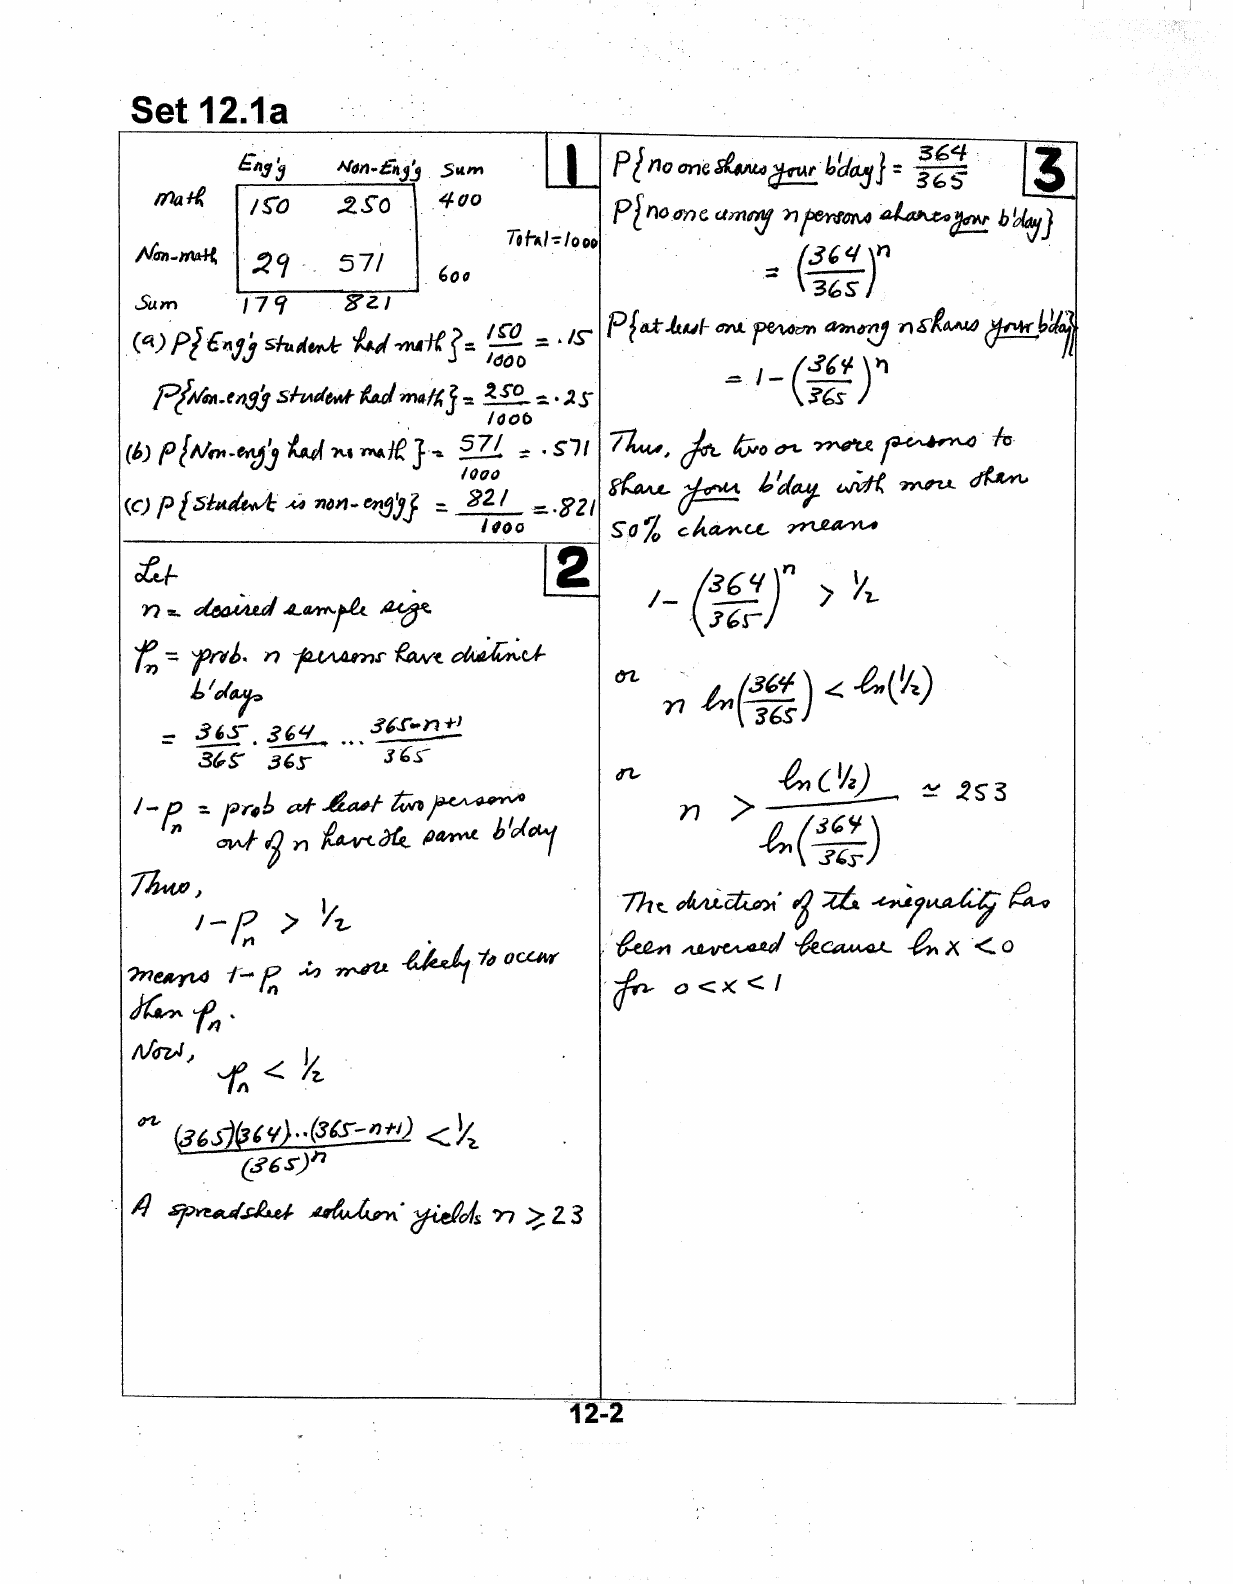 Set 12.1a
1
Eng'g Non-Eng'g Sum
Math 150 250 400
Total=1000
Non-math 29 571 600
Sum 179 821
(a) P{Eng'g student had math} = 150/1000 = .15
P{Non-eng'g student had math} = 250/1000 = .25
(b) P{Non-eng'g had no math} = 571/1000 = .571
(c) P{Student is non-eng'g} = 821/1000 = .821
2
Let
n = desired sample size
pn = prob. n persons have distinct
b'days
= 365/365 . 364/365 ... 365-n+1/365
1-pn = prob at least two persons
out of n have the same b'day
Thus,
1-pn > 1/2
means 1-pn is more likely to occur
then pn.
Now,
pn < 1/2
or (365)(364)..(365-n+1)/(365)^n < 1/2
A spreadsheet solution yields n ≥ 23
3
P{no one shares your b'day} = 364/365
P{no one among n persons shares your b'day}
= (364/365)^n
P{at least one person among n shares your b'day}
= 1-(364/365)^n
Thus, for two or more persons to
share your b'day with more than
50% chance means
1-(364/365)^n > 1/2
or n ln(364/365) < ln(1/2)
or n > ln(1/2)/ln(364/365) ≃ 253
The direction of the inequality has
been reversed because ln x < 0
for 0 < x < 1
12-2